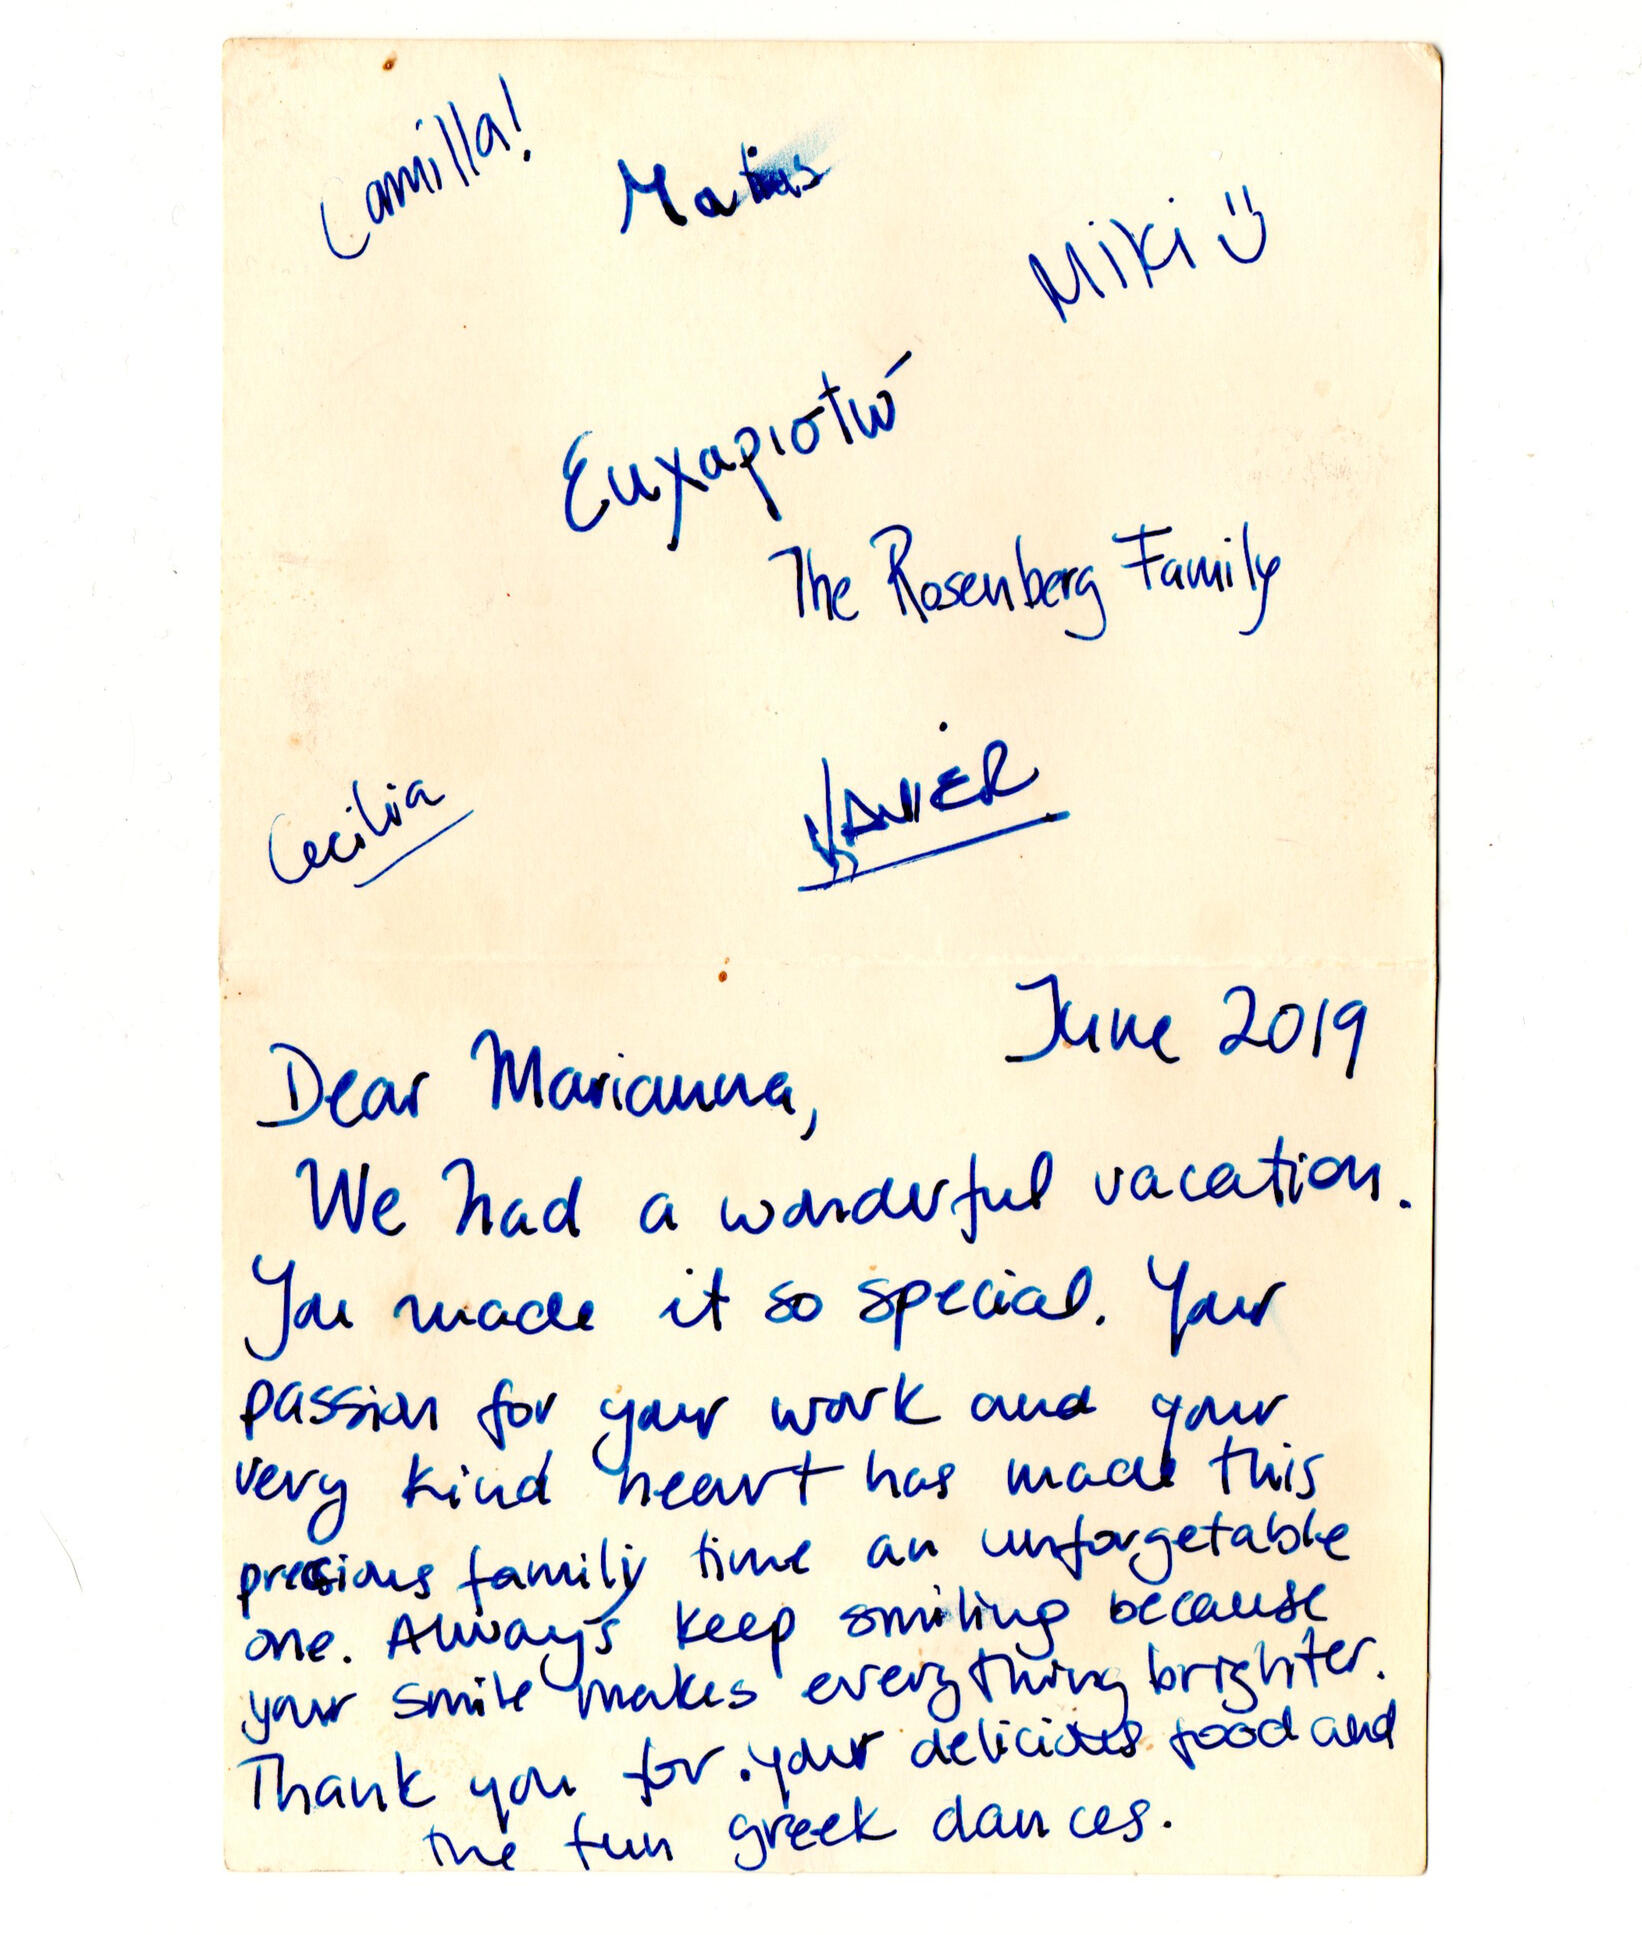 Camilla!
Matias
Miki
Ευχαριστώ
The Rosenberg Family
Cecilia
JAVIER
June 2019
Dear Marianna,
We had a wonderful vacation.
You made it so special. Your
passion for your work and your
very kind heart has made this
precious family time an unforgetable
one. Always keep smiling because
your smile makes everything brighter.
Thank you for your delicious food and
the fun greek dances.